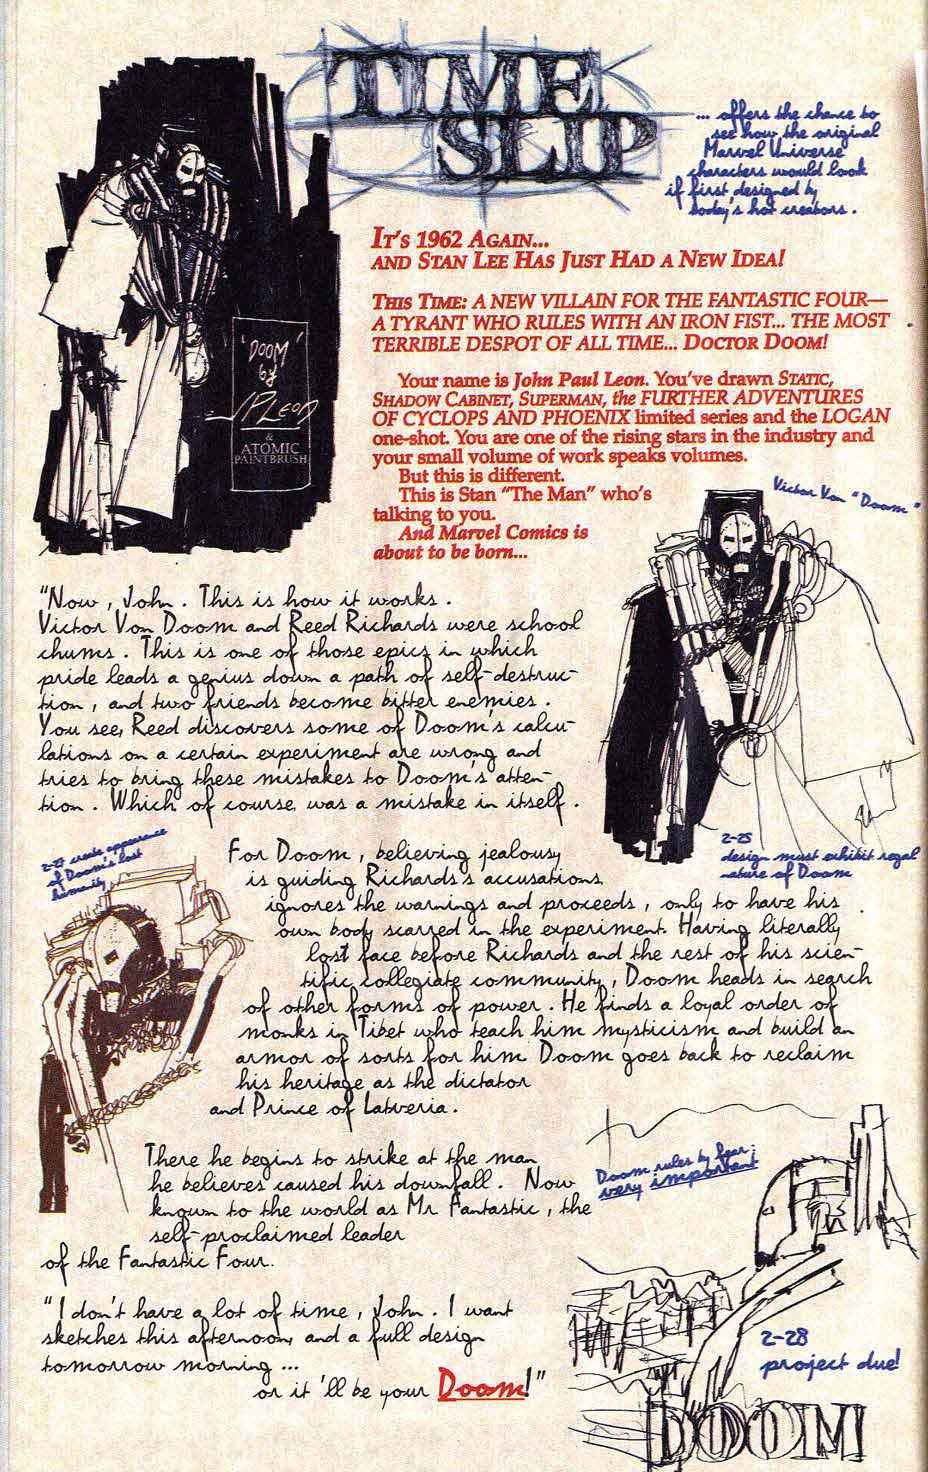 TIME
SLIP
... offers the chance to
see how the original
Marvel Universe
characters would look
if first designed by
today's hot creators.
IT'S 1962 AGAIN...
AND STAN LEE HAS JUST HAD A NEW IDEA!
THIS TIME: A NEW VILLAIN FOR THE FANTASTIC FOUR—
A TYRANT WHO RULES WITH AN IRON FIST... THE MOST
TERRIBLE DESPOT OF ALL TIME... DOCTOR DOOM!
'DOOM'
by
JPLEON
&
ATOMIC
PAINTBRUSH
Your name is John Paul Leon. You've drawn STATIC,
SHADOW CABINET, SUPERMAN, the FURTHER ADVENTURES
OF CYCLOPS AND PHOENIX limited series and the LOGAN
one-shot. You are one of the rising stars in the industry and
your small volume of work speaks volumes.
But this is different.
This is Stan "The Man" who's
talking to you.
And Marvel Comics is
about to be born...
Victor Von "Doom"
"Now, John. This is how it works.
Victor Von Doom and Reed Richards were school
chums. This is one of those epics in which
pride leads a genius down a path of self-destruc-
tion, and two friends become bitter enemies.
You see, Reed discovers some of Doom's calcu-
lations on a certain experiment are wrong and
tries to bring these mistakes to Doom's atten-
tion. Which of course, was a mistake in itself.
2-25
design must exhibit regal
nature of Doom
2-27 create appearance
of Doom's lost
humanity
For Doom, believing jealousy
is guiding Richards's accusations,
ignores the warnings and proceeds, only to have his
own body scarred in the experiment. Having literally
lost face before Richards and the rest of his scien-
tific collegiate community, Doom heads in search
of other forms of power. He finds a loyal order of
monks in Tibet who teach him mysticism and build an
armor of sorts for him. Doom goes back to reclaim
his heritage as the dictator
and Prince of Latveria.
There he begins to strike at the man
he believes caused his downfall. Now
known to the world as Mr Fantastic, the
self-proclaimed leader
of the Fantastic Four.
Doom rules by fear;
very important
"I don't have a lot of time, John. I want
sketches this afternoon, and a full design
tomorrow morning ...
or it'll be your Doom!"
2-28
project due!
DOOM